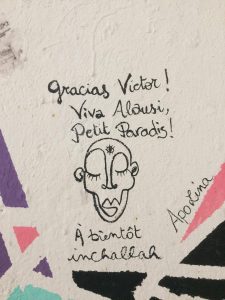 Gracias Victor !
Viva Alousi,
Petit Paradis!
À bientôt
inchallah
Apolina